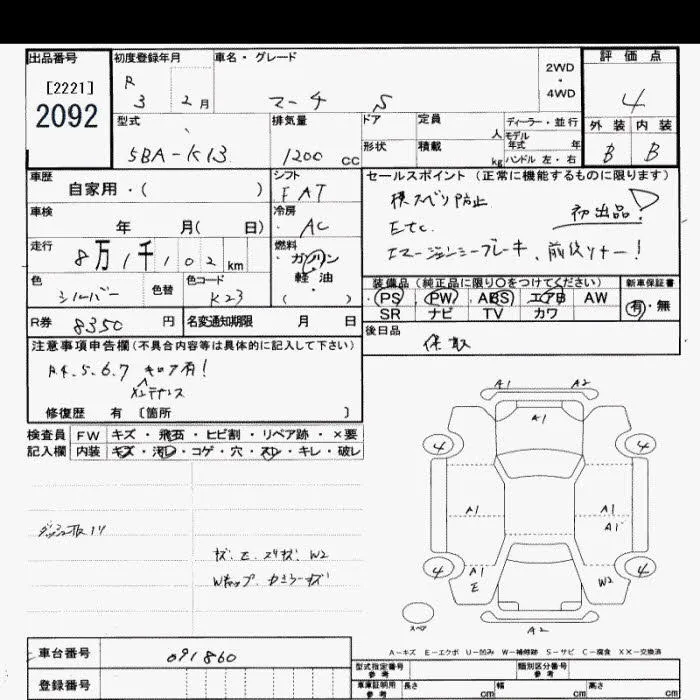 出品番号 初度登録年月 車名・グレード 2WD・4WD 評価点
[2221]
2092
R 3 2月 マーチ S 4
型式 排気量 ドア 定員 人 ディーラー・並行 外装 内装
モデル年式 年
5BA-K13 1200 cc 形状 積載 kg ハンドル 左・右 B B
車歴 シフト セールスポイント(正常に機能するものに限ります)
自家用・( ) FAT 横スベリ防止
初出品!
車検 冷房 Etc.
年 月( 日) AC エマージェンシーブレーキ、前後ソナー!
走行 燃料
8万1千102km ガソリン・軽油・( )
色 色替 色コード 装備品(純正品に限り○をつけてください) 新車保証書
シルバー K23 PS PW ABS エアB AW 有・無
SR ナビ TV カワ
R券 8350円 名変通知期限 月 日 後日品
保 取
注意事項申告欄(不具合内容等は具体的に記入して下さい)
R4.5.6.7 キロク有!
メンテナンス
修復歴 有〔箇所 〕
検査員 FW キズ・飛石・ヒビ割・リペア跡・×要
記入欄 内装 キズ・汚レ・コゲ・穴・スレ・キレ・破レ
A1 A2
A1
4 4
A1 A1
A1
4 A1 4
E W2
キズ、E、スリキズ、W2
Wキャップ、カミラーキズ
スペア A2
A-キズ E-エクボ U-凹み W-補修跡 S-サビ C-腐食 XX-交換済
車台番号 091860 型式指定番号 参考 類別区分番号 参考
登録番号 車庫証明用 参考 長さ cm 幅 cm 高さ cm